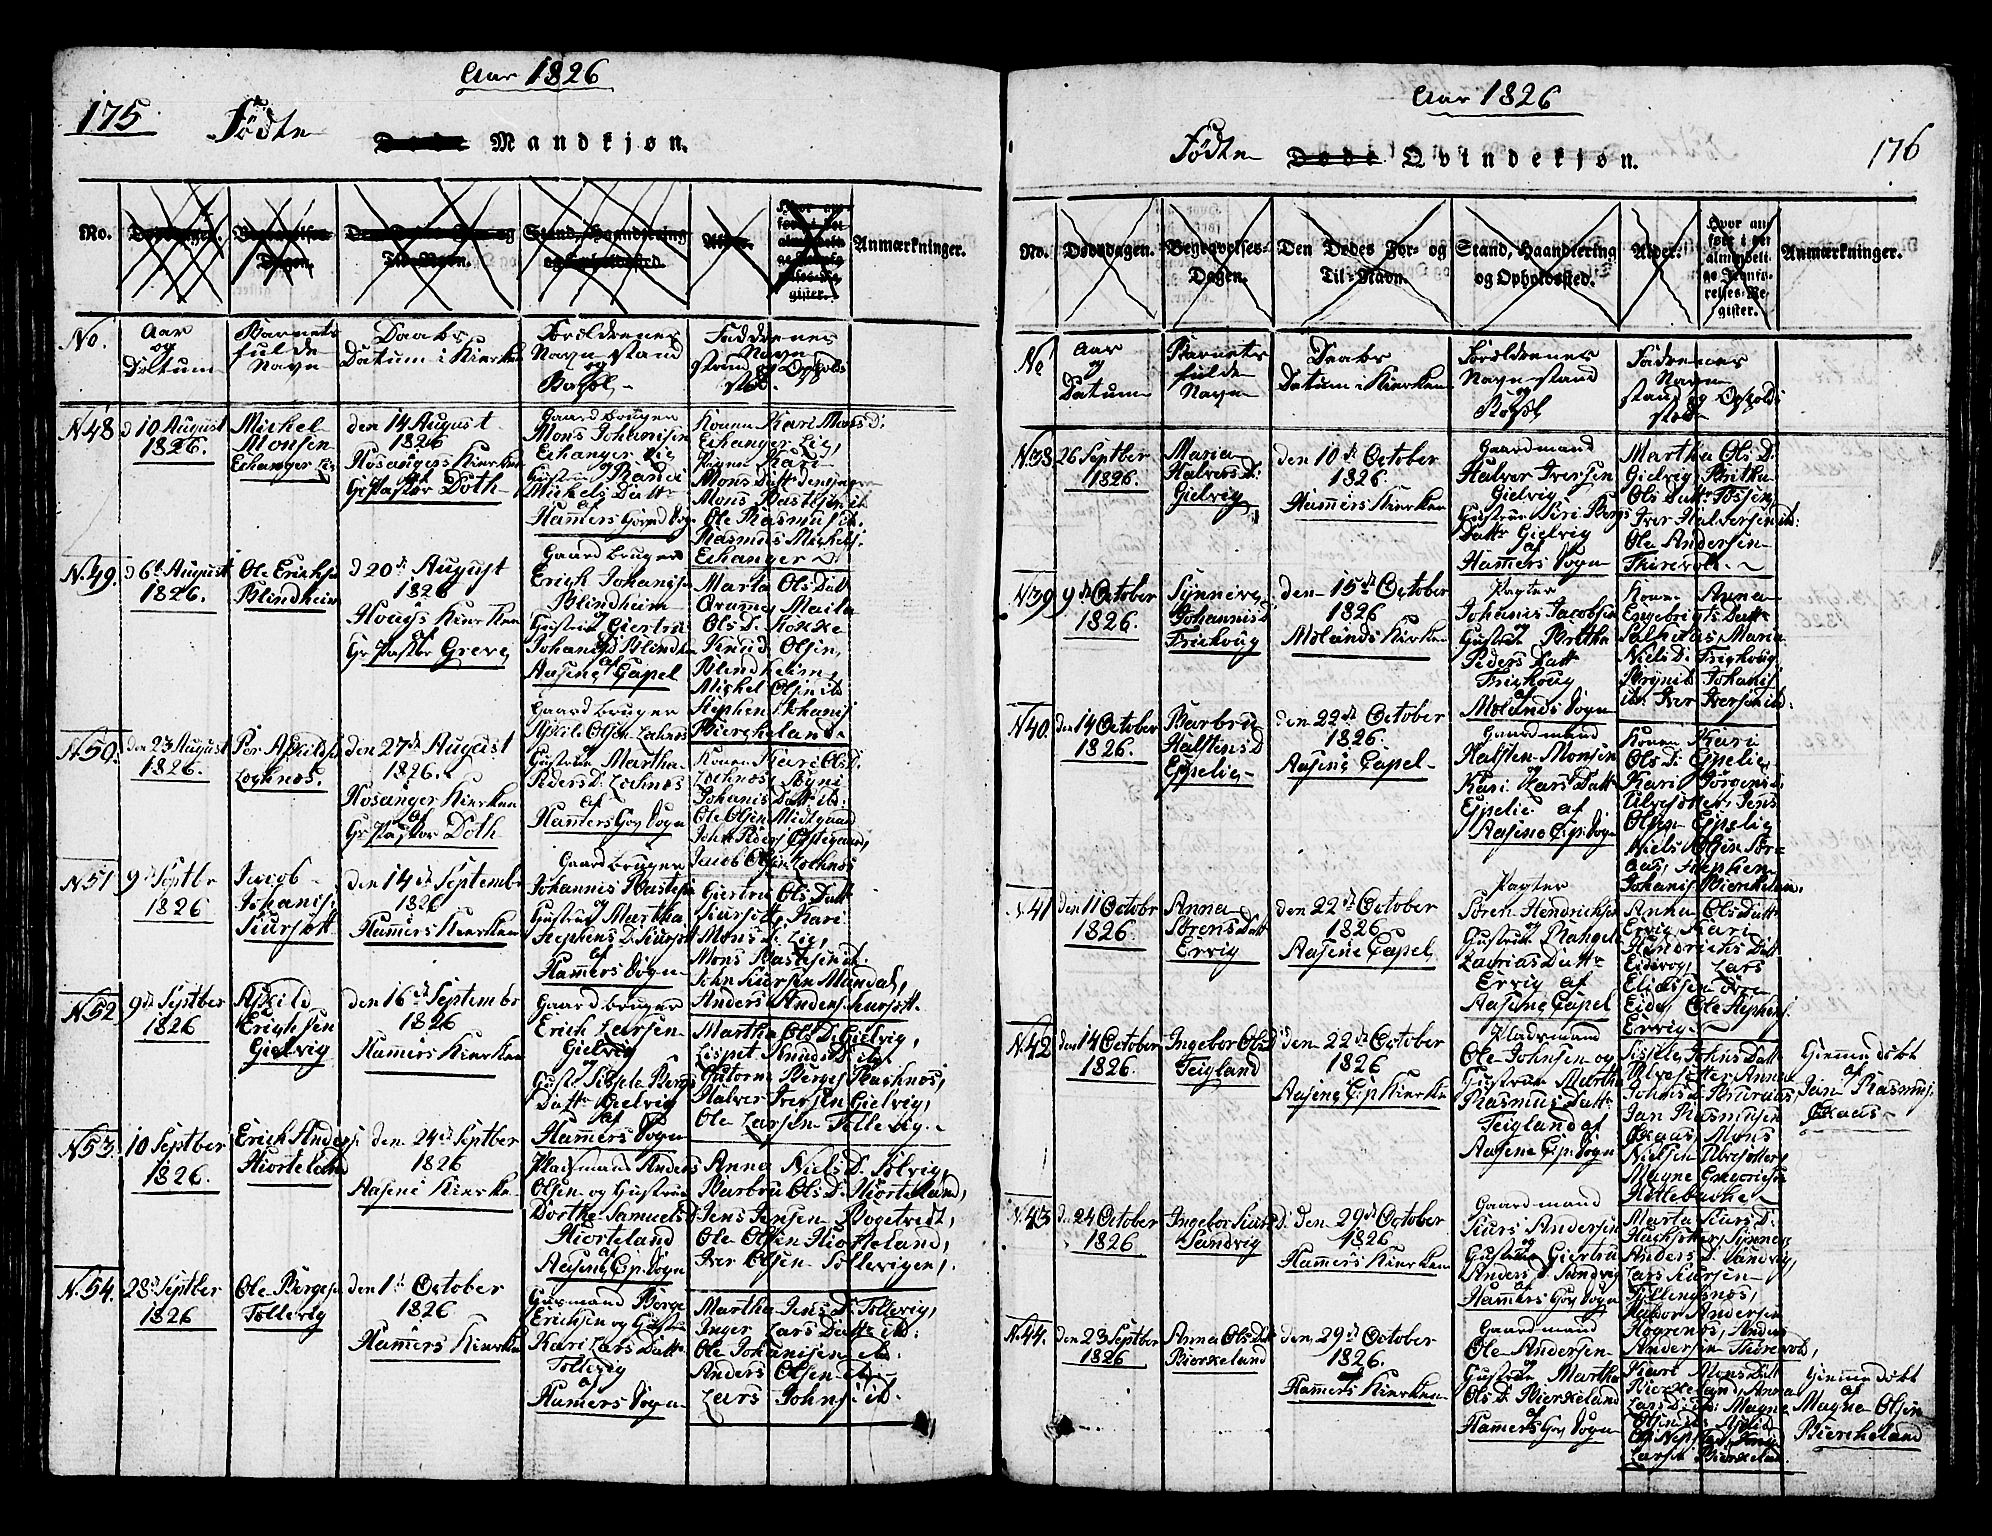 Aar 1826
175. Fødte
Døde Mandkjøn.
No. Dødsdagen. Begravelses- Dagen. Den Dødes For- og Til-Navn. Stand, Haandtering og Opholdssted. Alder. Anmærkninger.
No.
Aar
og
Datum
Barnets
fulde
Navn
Daabs
Datum i Kierken
Forældrenes
Navn stand
og
Bopæl
Faddernes
Navn
stand og Opholds
sted.
N 48
d 10 August
1826.
Michel
Monsen
Eihanger Lie
den 14 August
1826
Hosangers Kierken
af
Hr Pastor Doth
Gaardbruger
Mons Johanisen
Eihanger Lie
og
Gustrue Randi
Michels Datter
af
Hamers Sogn
Konen Kari Mons d:
Eihanger Lie,
Pigen Kari
Mons Datt
Mons Bastesen ib
Ole Rasmus ib.
Rasmus Michels.
Eihanger
N. 49.
d 6t August
1826.
Ole Erichsen
Blindheim
d 20de August
1826
Houys Kierken
af
Hr Pastor Greve
Gaard bruger
Erich Johanisen
Blindheim
og
Gustrue Giertru
Johanis D Blindheim
af
Aasene Capel
Marta Ols Datt
Qvame, Maita
Ols D. Kokke
Knud Olsen,
Blindheim,
Michel Olsen ib
Stephen Johanis
Bierkeland.
N. 50.
den 23 August
1826.
Per Askildsen
Lochnos.
den 27de August
1826.
Hosanger Kierken
af
Hr Pastor Doth
Gaard bruger
Askild Olsen Lochnos
og
Gustrue Martha
Peders D. Lochnos
af
Hamers Sogn
Konen Kari Ols D.
Lochnos, Sygni
Johanis Datt ib:
Ole Olsen Midtgaard
John Peders Opstegaard,
Jacob Olsen Lochnos
N 51
9de Septbr
1826
Jacob
Johanis,
Siursætt
den 14de Septembr
1826
Hamers Kierken
Gaard bruger
Johannis Bastesen
og
Gustrue Martha
Stephens D. Siursætt
af
Hamers Sogn
Giertru Ols Datt
Siursætt, Kari
Mons D. Lie,
Mons Bastesen ib.
John Siursen Mundal,
Anders Anders. Siursætt.
N. 52
9de Septber
1826
Askild
Erichsen
Gielvig
den 16de Septembr
1826
Hamers Kierken
Gaard bruger
Erich Larsen
Gielvig
og
Gustr. Sissela Berges
Datt. Gielvig
af
Hamers Sogn
Martha Ols D. Gielvig,
Lispet Knuds D. ib,
Guttorm Berges Rashnos,
Halver Iversen Gielvig,
Ole Larsen Tollevig.
N. 53.
10 Septber
1826.
Erich Anders.
Hiorteland
den 24de Septber
1826
Aasene Kierken
Pladsmand Anders
Olsen og Gustrue
Dorthe Samuels d
Hiorteland
af
Aasene Cap. Sogn
Anna Niels D. Tolvig,
Barbru Ols D. Hiorteland,
Jens Jensen Bogetvedt,
Ole Olsen Hiorteland,
Iver Olsen Tollevigen,
N. 54.
28de Septber
1826
Ole Bergesen
Tollevig
den 1ste October
1826
Hamers Kierken
Husmand Berge
Erichsen og Gustrue
Kari Lars Datt.
Tollevig
af
Hamers Sogn
Martha Jens D. Tollevig,
Inger Lars Datt ib:
Ole Johanisen ib:
Anders Olsen ib.
Lars Johns. ib.
Aar 1826
Fødte Døde Qvindekjøn. 176
No. Dødsdagen. Begravelses- Dagen. Den Dødes For- og Til-Navn. Stand, Haandtering og Opholdssted. Alder. Hvor anført i det almindelige Jevnførelses-Register. Anmærkninger.
No
Aar
og
Datum
Barnets
fulde
Navn
Daabs
Datum i Kierken
Forældrenes
Navn stand
og
Bopæl
Faddernes
Navn
stand og Opholds
sted
N. 38
26 Septber
1826.
Maria
Halvers D:
Gielvig
den 10de October
1826
Hamers Kierken
Gaardmand
Halver Iversen
Gielvig
Gustrue Siri Berges
Datt. Gielvig
af
Hamers Sogn
Martha Ols D:
Gielvig, Britha
Ols Datt. Fossen,
Iver Halversen ib:
Ole Andersen
Thirevold.
N 39
9de October
1826.
Synneve
Johannis D
Friskoug
den 15de October
1826
Molands Kierken
Pagter
Johanis Jacobsen
og
Gustrue Britha
Peders Datt.
Friskoug
af
Molands Sogn
Konen Anna
Engebrigts Datt.
Salhuus, Maria
Niels D: Friskoug,
Brynild Johanis
ib. Iver Iversen ib:
N 40.
den 14 October
1826.
Barbru
Halsteins D
Espelie
den 22de October
1826.
Aasene Capel
Gaardmand
Halsten Monsen
og
Kari Lars Datt.
Espelie af
Aasene Cap: Sogn
Konen Kari
Ols D: Espelie,
Kari Jørgens D:
Ulvesætter, Jens
Olsen Espelie,
Niels Olsen
Stephen
Johanis Bierkeland,
N. 41
den 11 Octobr
1826
Anna
Sørens Datt
Ervig
den 22de October
1826
Aasene Capel
Pagter
Søren Hendrichsen
og
Gustrue Magele
Zacrias Datt.
Ervig af
Aasene Capel
Anna Ols Datt.
Ervig, Kari
Hendrichs Datt
Eidsvog, Lars
Eliassen Øvre
Eide, Ole Stephens.
Ervig
N. 42
den 14 October
1826.
Ingebor Ols D
Teigland
den 22de October
1826
Aasene Cap Kierken
Pladsmand
Ole Johnsen og
Gustrue Martha
Rasmus Datt.
Teigland af
Aasene Cap. Sogn
Sissele Johns Datt
Ulvesetter Anna
Johns D. Bruraas,
Jan Rasmusen
Skaas, Mons
Nielsen Ulvesetter,
Magne Gregoriesen
Hetlebacke
Hiemmedøbt
af
Jan Rasmus.
Skaas
N. 43
d. 24 October
1826
Ingebor Siurs D:
Sandvig
den 29de October
1826
Hamers Kierken
Gaardmand
Siurs Andersen
og
Gustrue Giertru
Anders D. Sandvig
Hamers Sogn
Marta Siurs D.
Hughsetter, Synneve
Anders D: Sandvig,
Lars Siursen
Tellingnos,
Nabor Andersen
Høgrenos, Anders
Andersen Thorevold,
N. 44.
den 23 Septber
1826
Anna Ols Datt
Bierkeland
den 29de October
1826.
Hamers Kierken
Gaardmand
Ole Andersen
og
Gustrue Martha
Ols D. Bierkeland
af
Hamers Sogn
Kari Mons Datt
Bierkeland, Anna
Lars D. ib: Magne
Olsen ib, Askild
Larsen Bierkeland.
Hiemmedøbt
af
Magne Olsen
Bierckeland